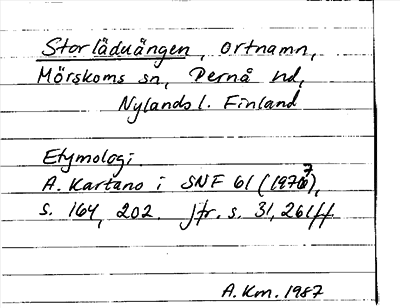 Storläduängen, ortnamn,
Mörskoms sn, Pernå hd,
Nylands l. Finland
Etymologi.
A. Kartano i SNF 61 (1977),
s. 164, 202. Jfr. s. 31, 261 ff
A.Km. 1987